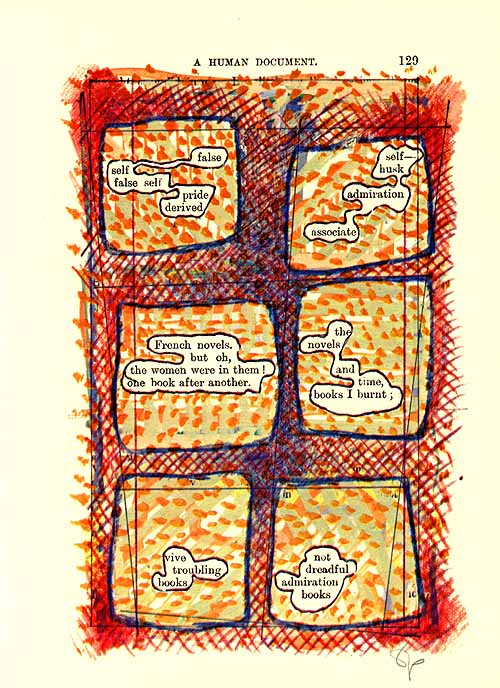 A HUMAN DOCUMENT. 129
false
self
false self
pride
derived
self—
husk
admiration
associate
French novels.
but oh,
the women were in them!
one book after another.
the
novels
and
time,
books I burnt;
vive
troubling
books
not
dreadful
admiration
books